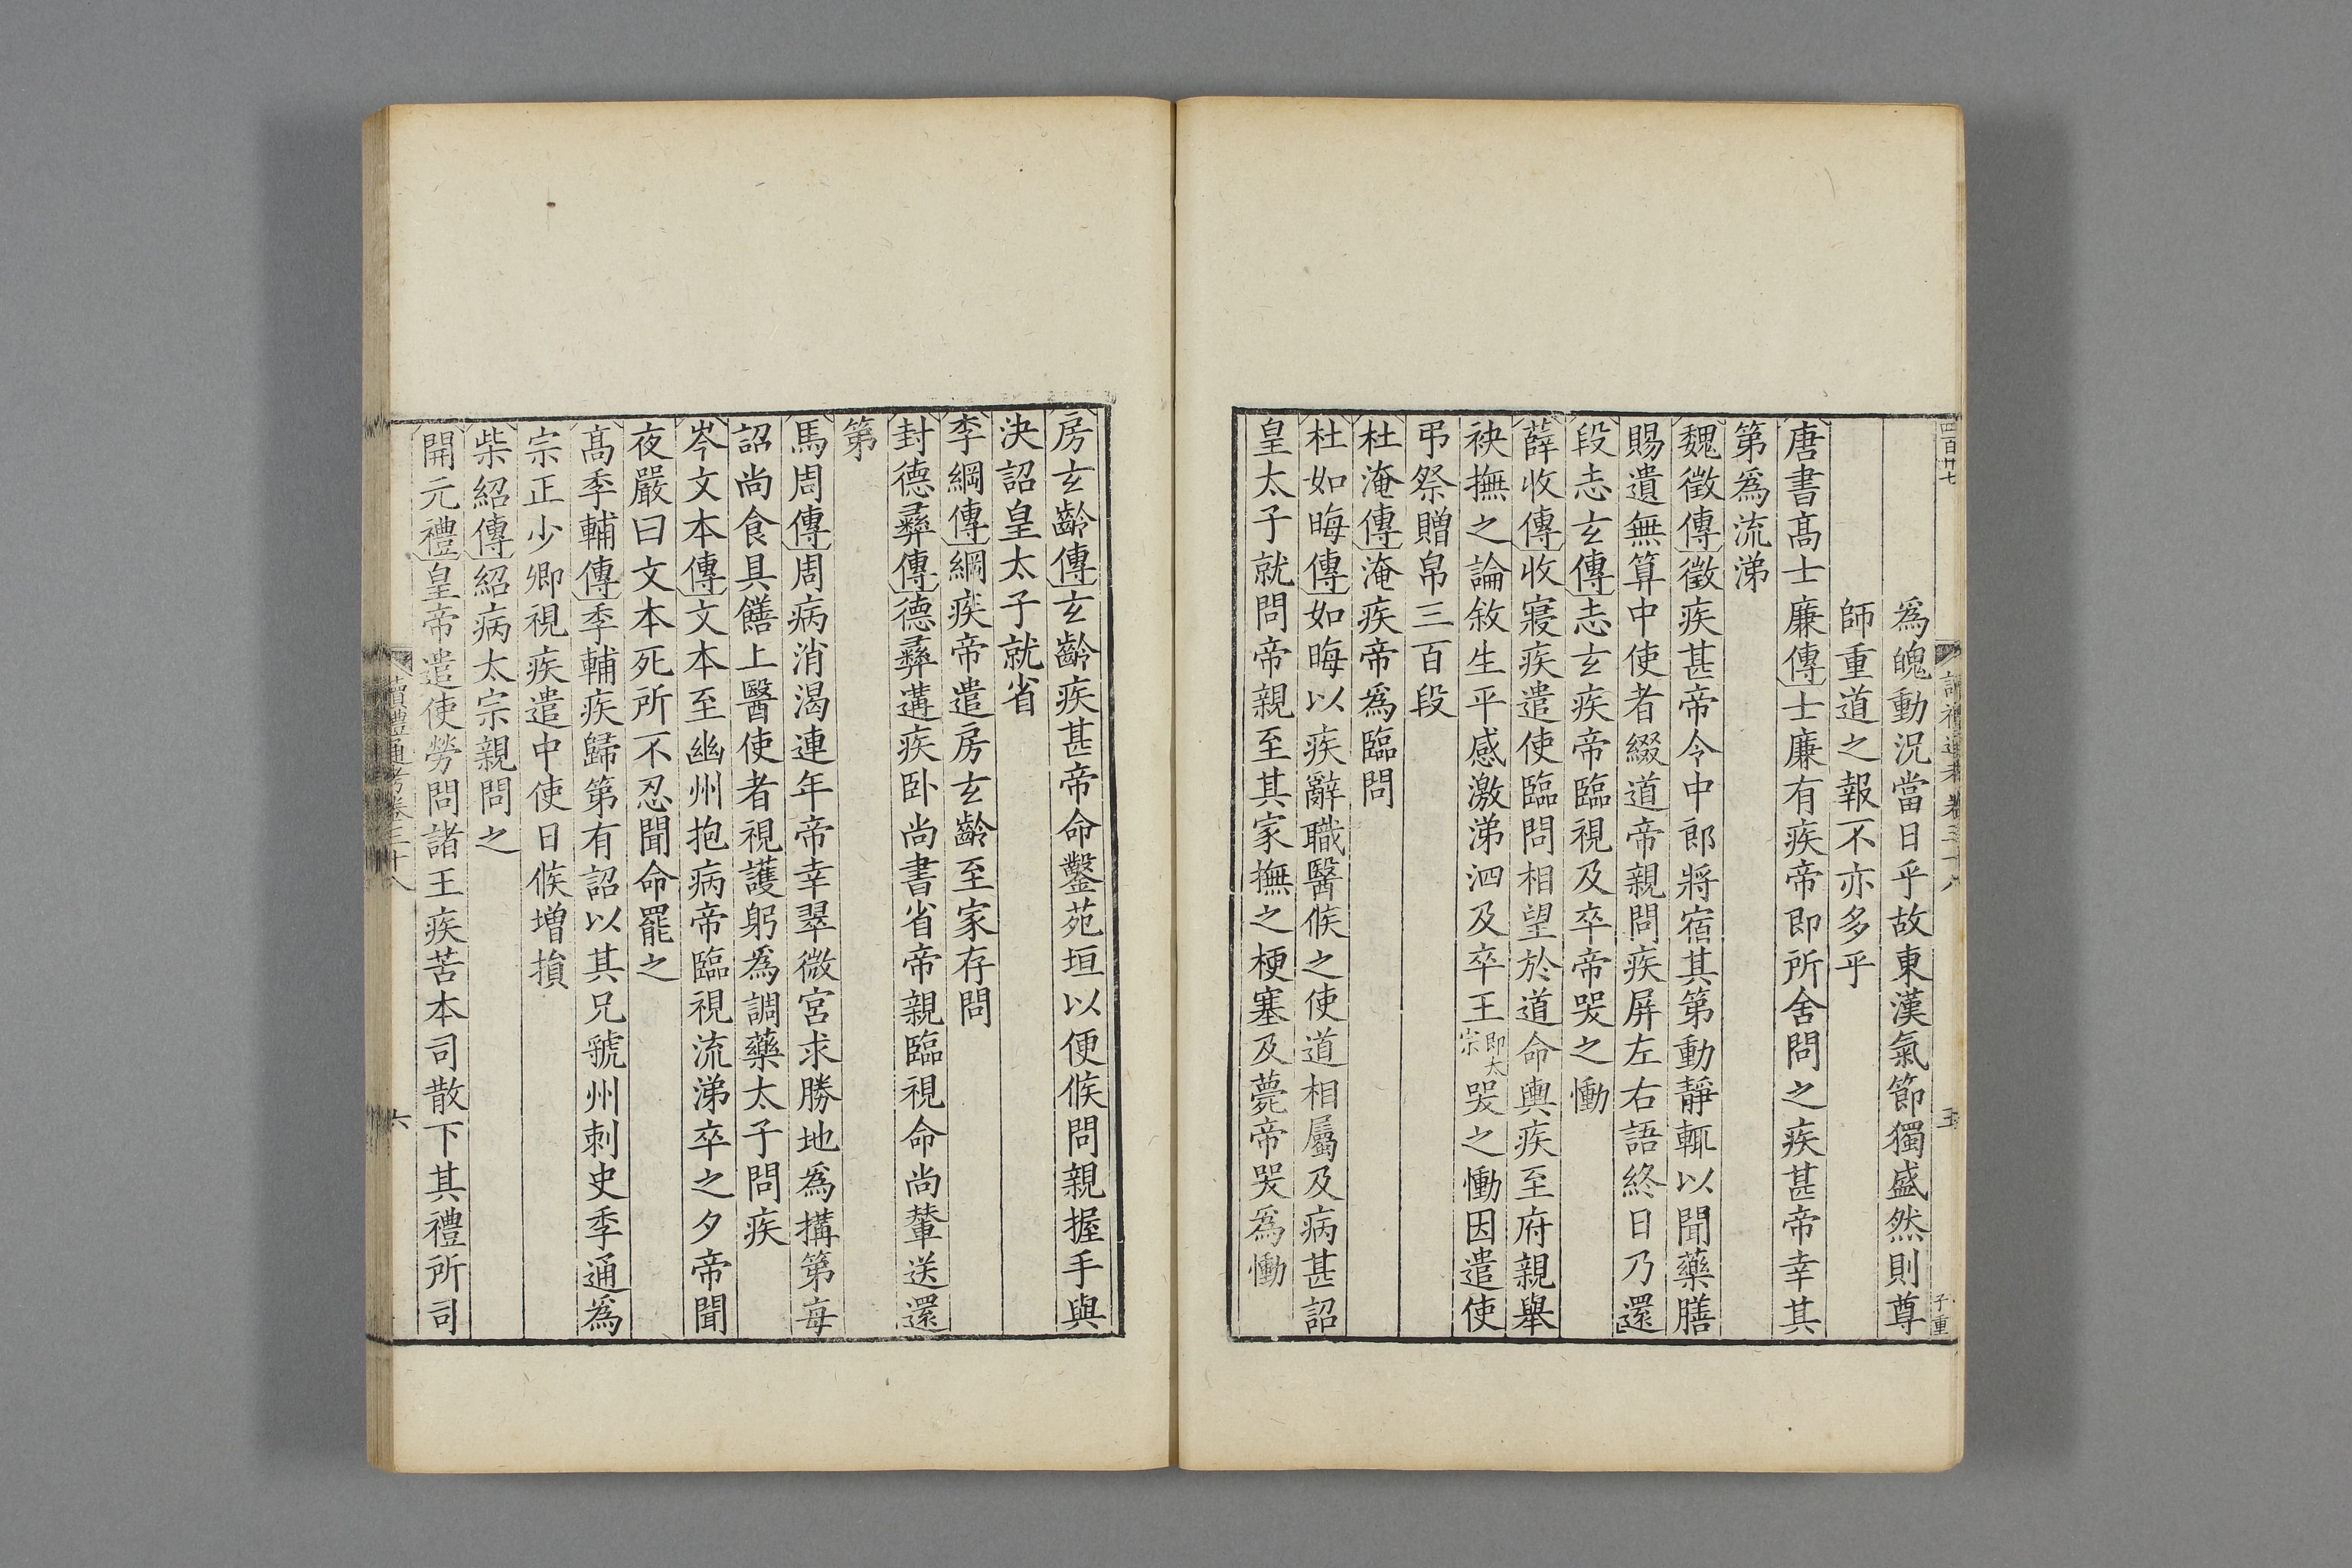 四百卅七
讀禮通考 卷三十八
五
子重
爲媿動况當日乎故東漢氣節獨盛然則尊
師重道之報不亦多乎
唐書髙士廉傳士廉有疾帝即所舍問之疾甚帝幸其
第爲流涕
魏徵傳徵疾甚帝令中郎將宿其第動靜輒以聞藥膳
賜遺無算中使者綴道帝親問疾屏左右語終日乃還
段志玄傳志玄疾帝臨視及卒帝哭之慟
薛收傳收寢疾遣使臨問相望於道命輿疾至府親舉
袂撫之論敘生平感激涕泗及卒王即太宗哭之慟因遣使
弔祭贈帛三百段
杜淹傳淹疾帝爲臨問
杜如晦傳如晦以疾辭職醫候之使道相屬及病甚詔
皇太子就問帝親至其家撫之梗塞及薨帝哭爲慟
房玄齡傳玄齡疾甚帝命鑿苑垣以便候問親握手與
決詔皇太子就省
李綱傳綱疾帝遣房玄齡至家存問
封德彝傳德彝遘疾卧尚書省帝親臨視命尚輦送還
第
馬周傳周病消渴連年帝幸翠微宮求勝地爲搆第每
詔尚食具饍上醫使者視護躬爲調藥太子問疾
岑文本傳文本至幽州抱病帝臨視流涕卒之夕帝聞
夜嚴曰文本死所不忍聞命罷之
髙季輔傳季輔疾歸第有詔以其兄虢州刺史季通爲
宗正少卿視疾遣中使日候增損
柴紹傳紹病太宗親問之
開元禮皇帝遣使勞問諸王疾苦本司散下其禮所司
讀禮通考卷三十八
六